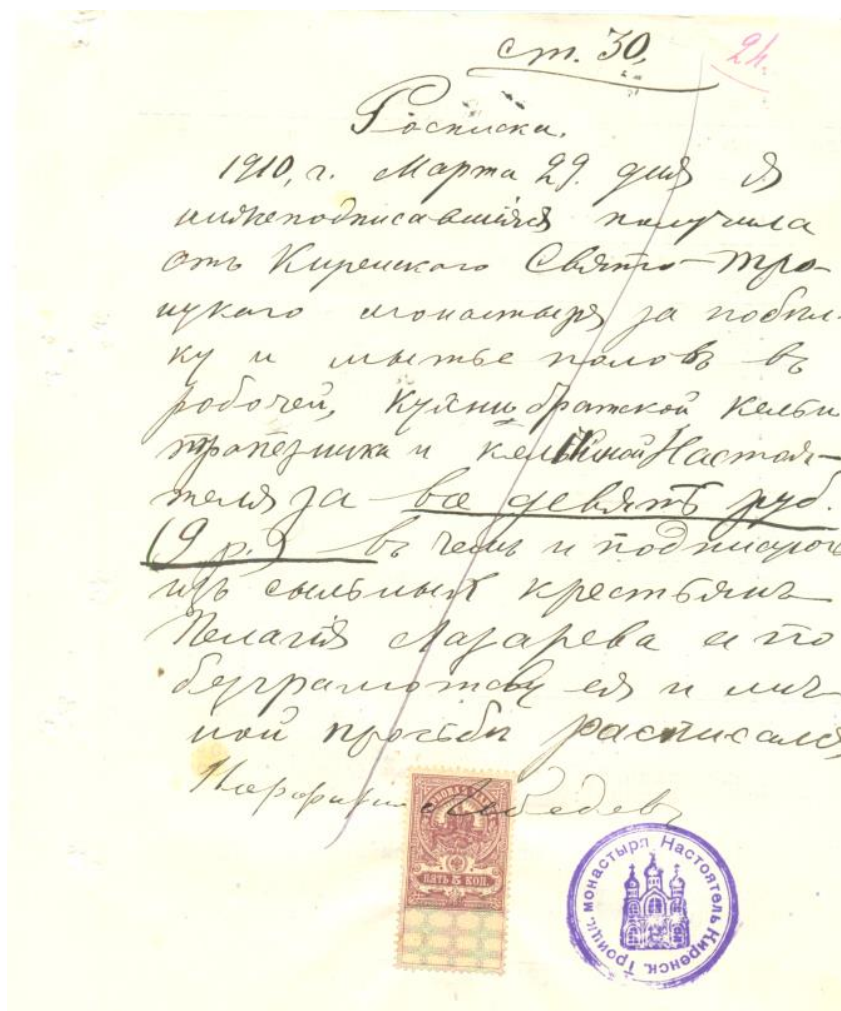 ст. 30.
24.
Росписка.
1910, г. Марта 29. дня я
нижеподписавшийся получила
отъ Киренского Свято-Тро-
ицкого монастыря за побѣл-
ку и мытье половъ въ
робочей, Кухни братской Кельи
трапезника и Настоя-
теля за все девять руб.
(9 р.) въ чемъ и подписуюсь
изъ сыльных крестьянъ
Пелагия Лазарева а по
безграмотству ея и лич-
ной прозьбы расписался
Лебедевъ
ПЯТЬ 5 КОП.
Настоятель Киренск. Троицк. монастыря